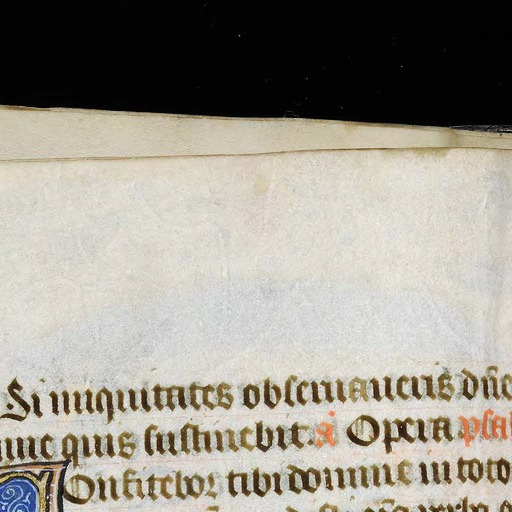 Si iniquitates obseruaueris dñe
quis sustinebit. a Opera psal
Confitebor tibi domine in toto